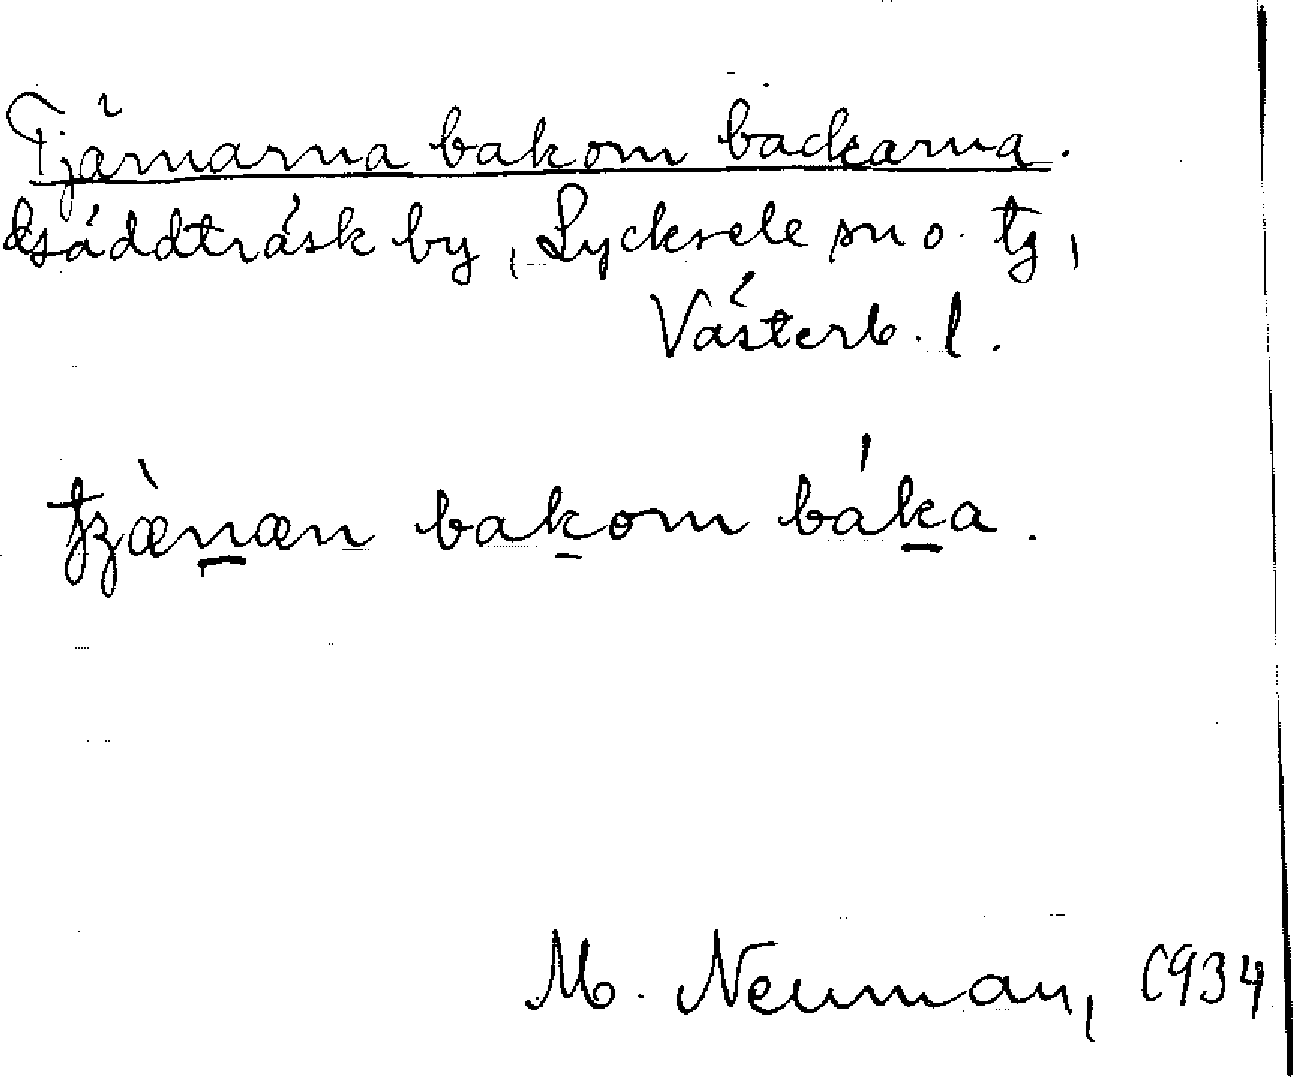 Tjärnarna bakom backarna.
Bjäddträsk by, Lycksele sn o. tg,
Västerb. l.
bakom báka.
M. Neuman, 1934